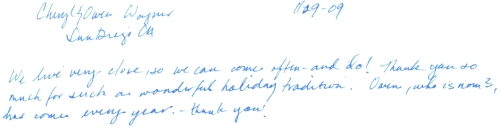 Cheryl & Owen Wagner 11-29-09
San Diego CA
We live very close, so we can come often - and do! Thank you so
much for such a wonderful holiday tradition. Owen, who is now 3,
has come every year. - thank you!